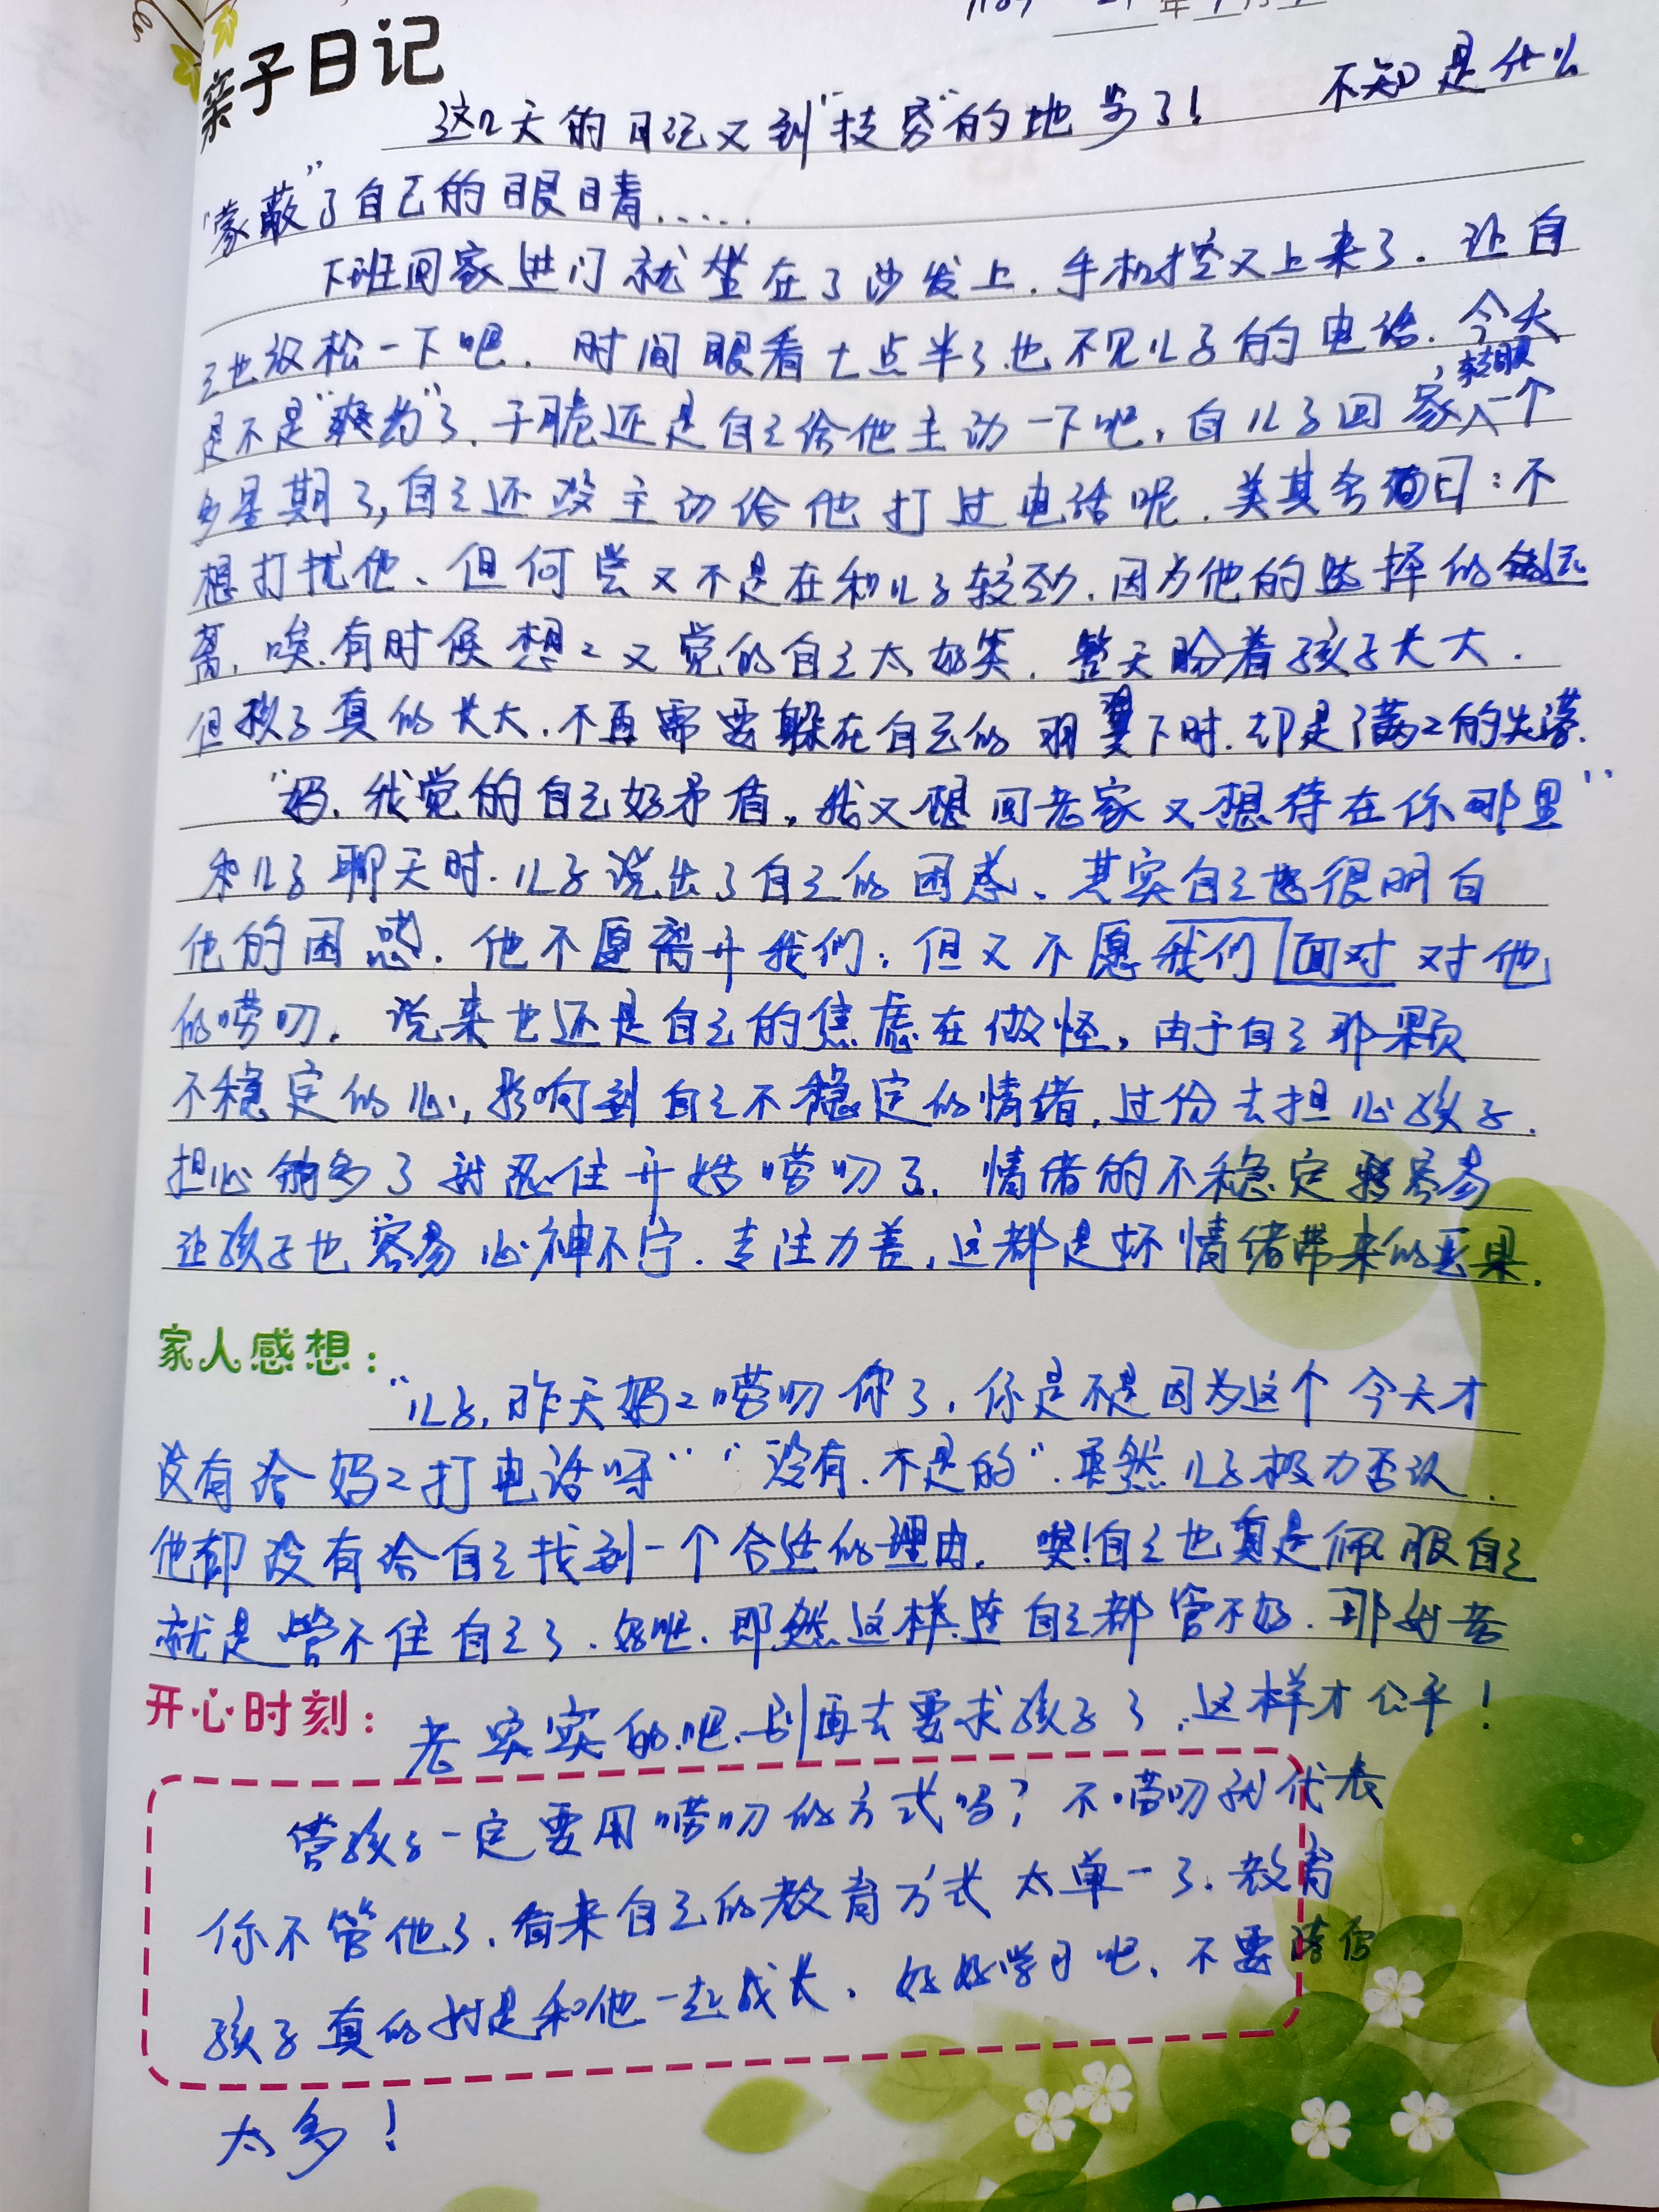 年 月
亲子日记
这几天的日记又到“技穷”的地步了！ 不知是什么
“蒙蔽”了自己的眼睛……
下班回家进门就坐在了沙发上．手机控又上来了．让自
己也放松一下吧．时间眼看七点半了也不见儿子的电话．今天
是不是“爽约”了．干脆还是自己给他主动一下吧，自儿子回家转眼一个
多星期了，自己还没主动给他打过电话呢．美其名曰：不
想打扰他、但何尝又不是在和儿子较劲．因为他的选择的
离．唉．有时候想々又觉的自己太好笑．整天盼着孩子长大．
但孩子真的长大．不再需要躲在自己的羽翼下时．却是满々的失落．
“妈．我觉的自己好矛盾，我又想回老家又想待在你那里”
和儿子聊天时．儿子说出了自己的困惑、其实自己也很明白
他的困惑．他不愿离开我们，但又不愿我们面对对他
的唠叨． 说来也还是自己的焦虑在做怪，由于自己那颗
不稳定的心，影响到自己不稳定的情绪，过份去担心孩子．
担心的多了就忍住开始唠叨了．情绪的不稳定容易
让孩子也容易心神不宁．专注力差，这都是坏情绪带来的恶果．
家人感想：
“儿子，昨天妈々唠叨你了，你是不是因为这个今天才
没有给妈々打电话呀”“没有．不是的”．虽然儿子极力否认．
他却没有给自己找到一个合适的理由． 唉！自己也真是佩服自己
就是管不住自己了．好吧．即然这样连自己都管不好．那就老
开心时刻：
老实实的吧．别再去要求孩子了．这样才公平！
管孩子一定要用唠叨的方式吗？不唠叨就代表
你不管他了．看来自己的教育方式太单一了．教育
孩子真的就是和他一起成长．好好学习吧、不要
太多！